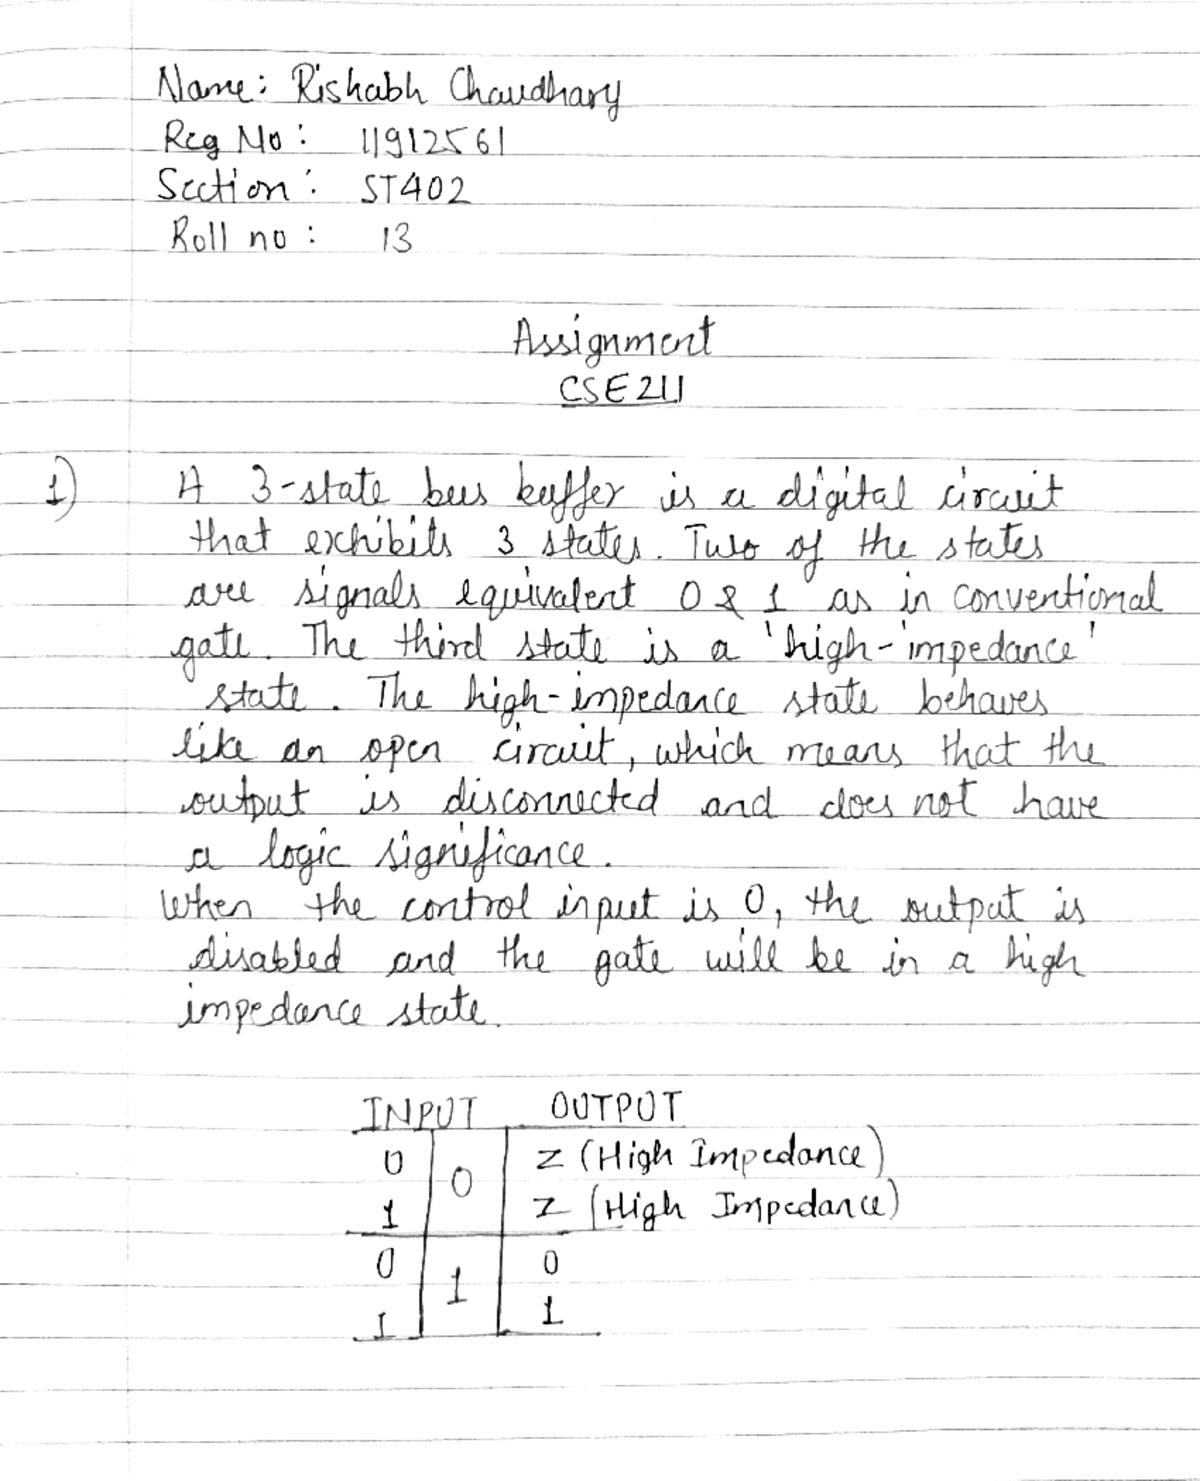 Name: Rishabh Chaudhary
Reg No: 11912561
Section: ST402
Roll no: 13
Assignment
CSE211
1) A 3-state bus buffer is a digital circuit
that exhibits 3 states. Two of the states
are signals equivalent 0 & 1 as in conventional
gate. The third state is a 'high-impedance'
state. The high-impedance state behaves
like an open circuit, which means that the
output is disconnected and does not have
a logic significance.
When the control input is 0, the output is
disabled and the gate will be in a high
impedance state.
INPUT OUTPUT
0 0 Z (High Impedance)
1 Z (High Impedance)
0 1 0
1 1